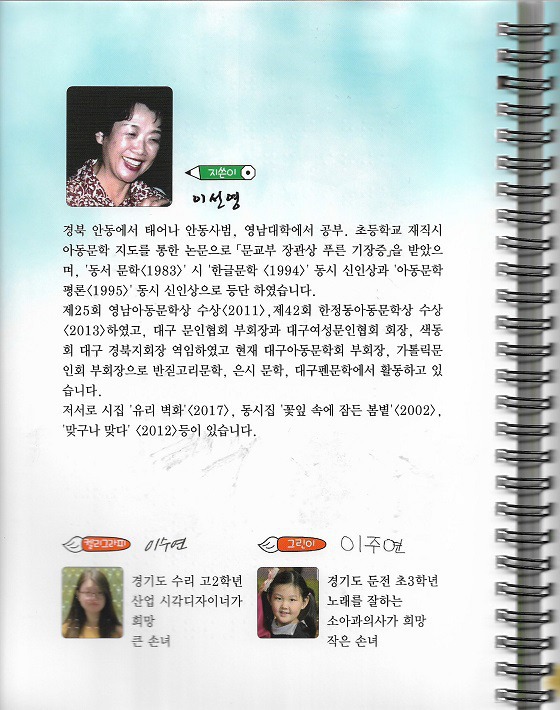 지쓴이
이선영
경북 안동에서 태어나 안동사범, 영남대학에서 공부. 초등학교 재직시
아동문학 지도를 통한 논문으로 「문교부 장관상 푸른 기장증」을 받았으
며, '동서 문학〈1983〉' 시 '한글문학 〈1994〉' 동시 신인상과 '아동문학
평론〈1995〉' 동시 신인상으로 등단 하였습니다.
제25회 영남아동문학상 수상〈2011〉,제42회 한정동아동문학상 수상
〈2013〉하였고, 대구 문인협회 부회장과 대구여성문인협회 회장, 색동
회 대구 경북지회장 역임하였고 현재 대구아동문학회 부회장, 가톨릭문
인회 부회장으로 반짇고리문학, 은시 문학, 대구펜문학에서 활동하고 있
습니다.
저서로 시집 '유리 벽화'〈2017〉, 동시집 '꽃잎 속에 잠든 봄볕'〈2002〉,
'맞구나 맞다' 〈2012〉등이 있습니다.
캘리그라피 이수연
경기도 수리 고2학년
산업 시각디자이너가
희망
큰 손녀
그린이 이주연
경기도 둔전 초3학년
노래를 잘하는
소아과의사가 희망
작은 손녀